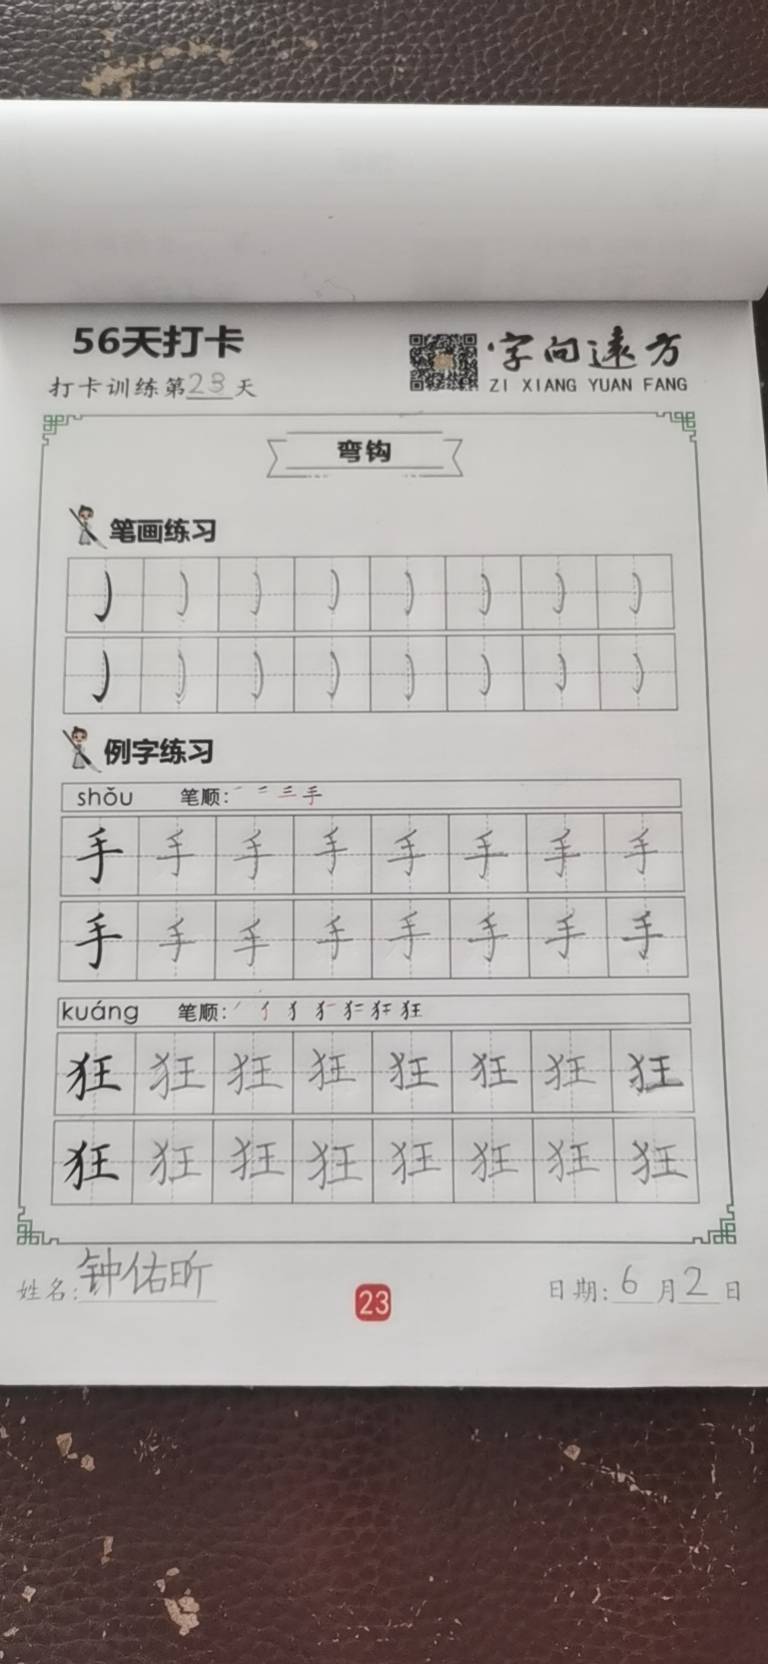 56天打卡
字向远方
打卡训练第23天
ZI XIANG YUAN FANG
弯钩
笔画练习
㇁ ㇁ ㇁ ㇁ ㇁ ㇁ ㇁ ㇁
㇁ ㇁ ㇁ ㇁ ㇁ ㇁ ㇁ ㇁
例字练习
shǒu 笔顺: 一 二 三 手
手 手 手 手 手 手 手 手
手 手 手 手 手 手 手 手
kuáng 笔顺: 狂
狂 狂 狂 狂 狂 狂 狂 狂
狂 狂 狂 狂 狂 狂 狂 狂
姓名: 钟佑昕
23
日期: 6月2日